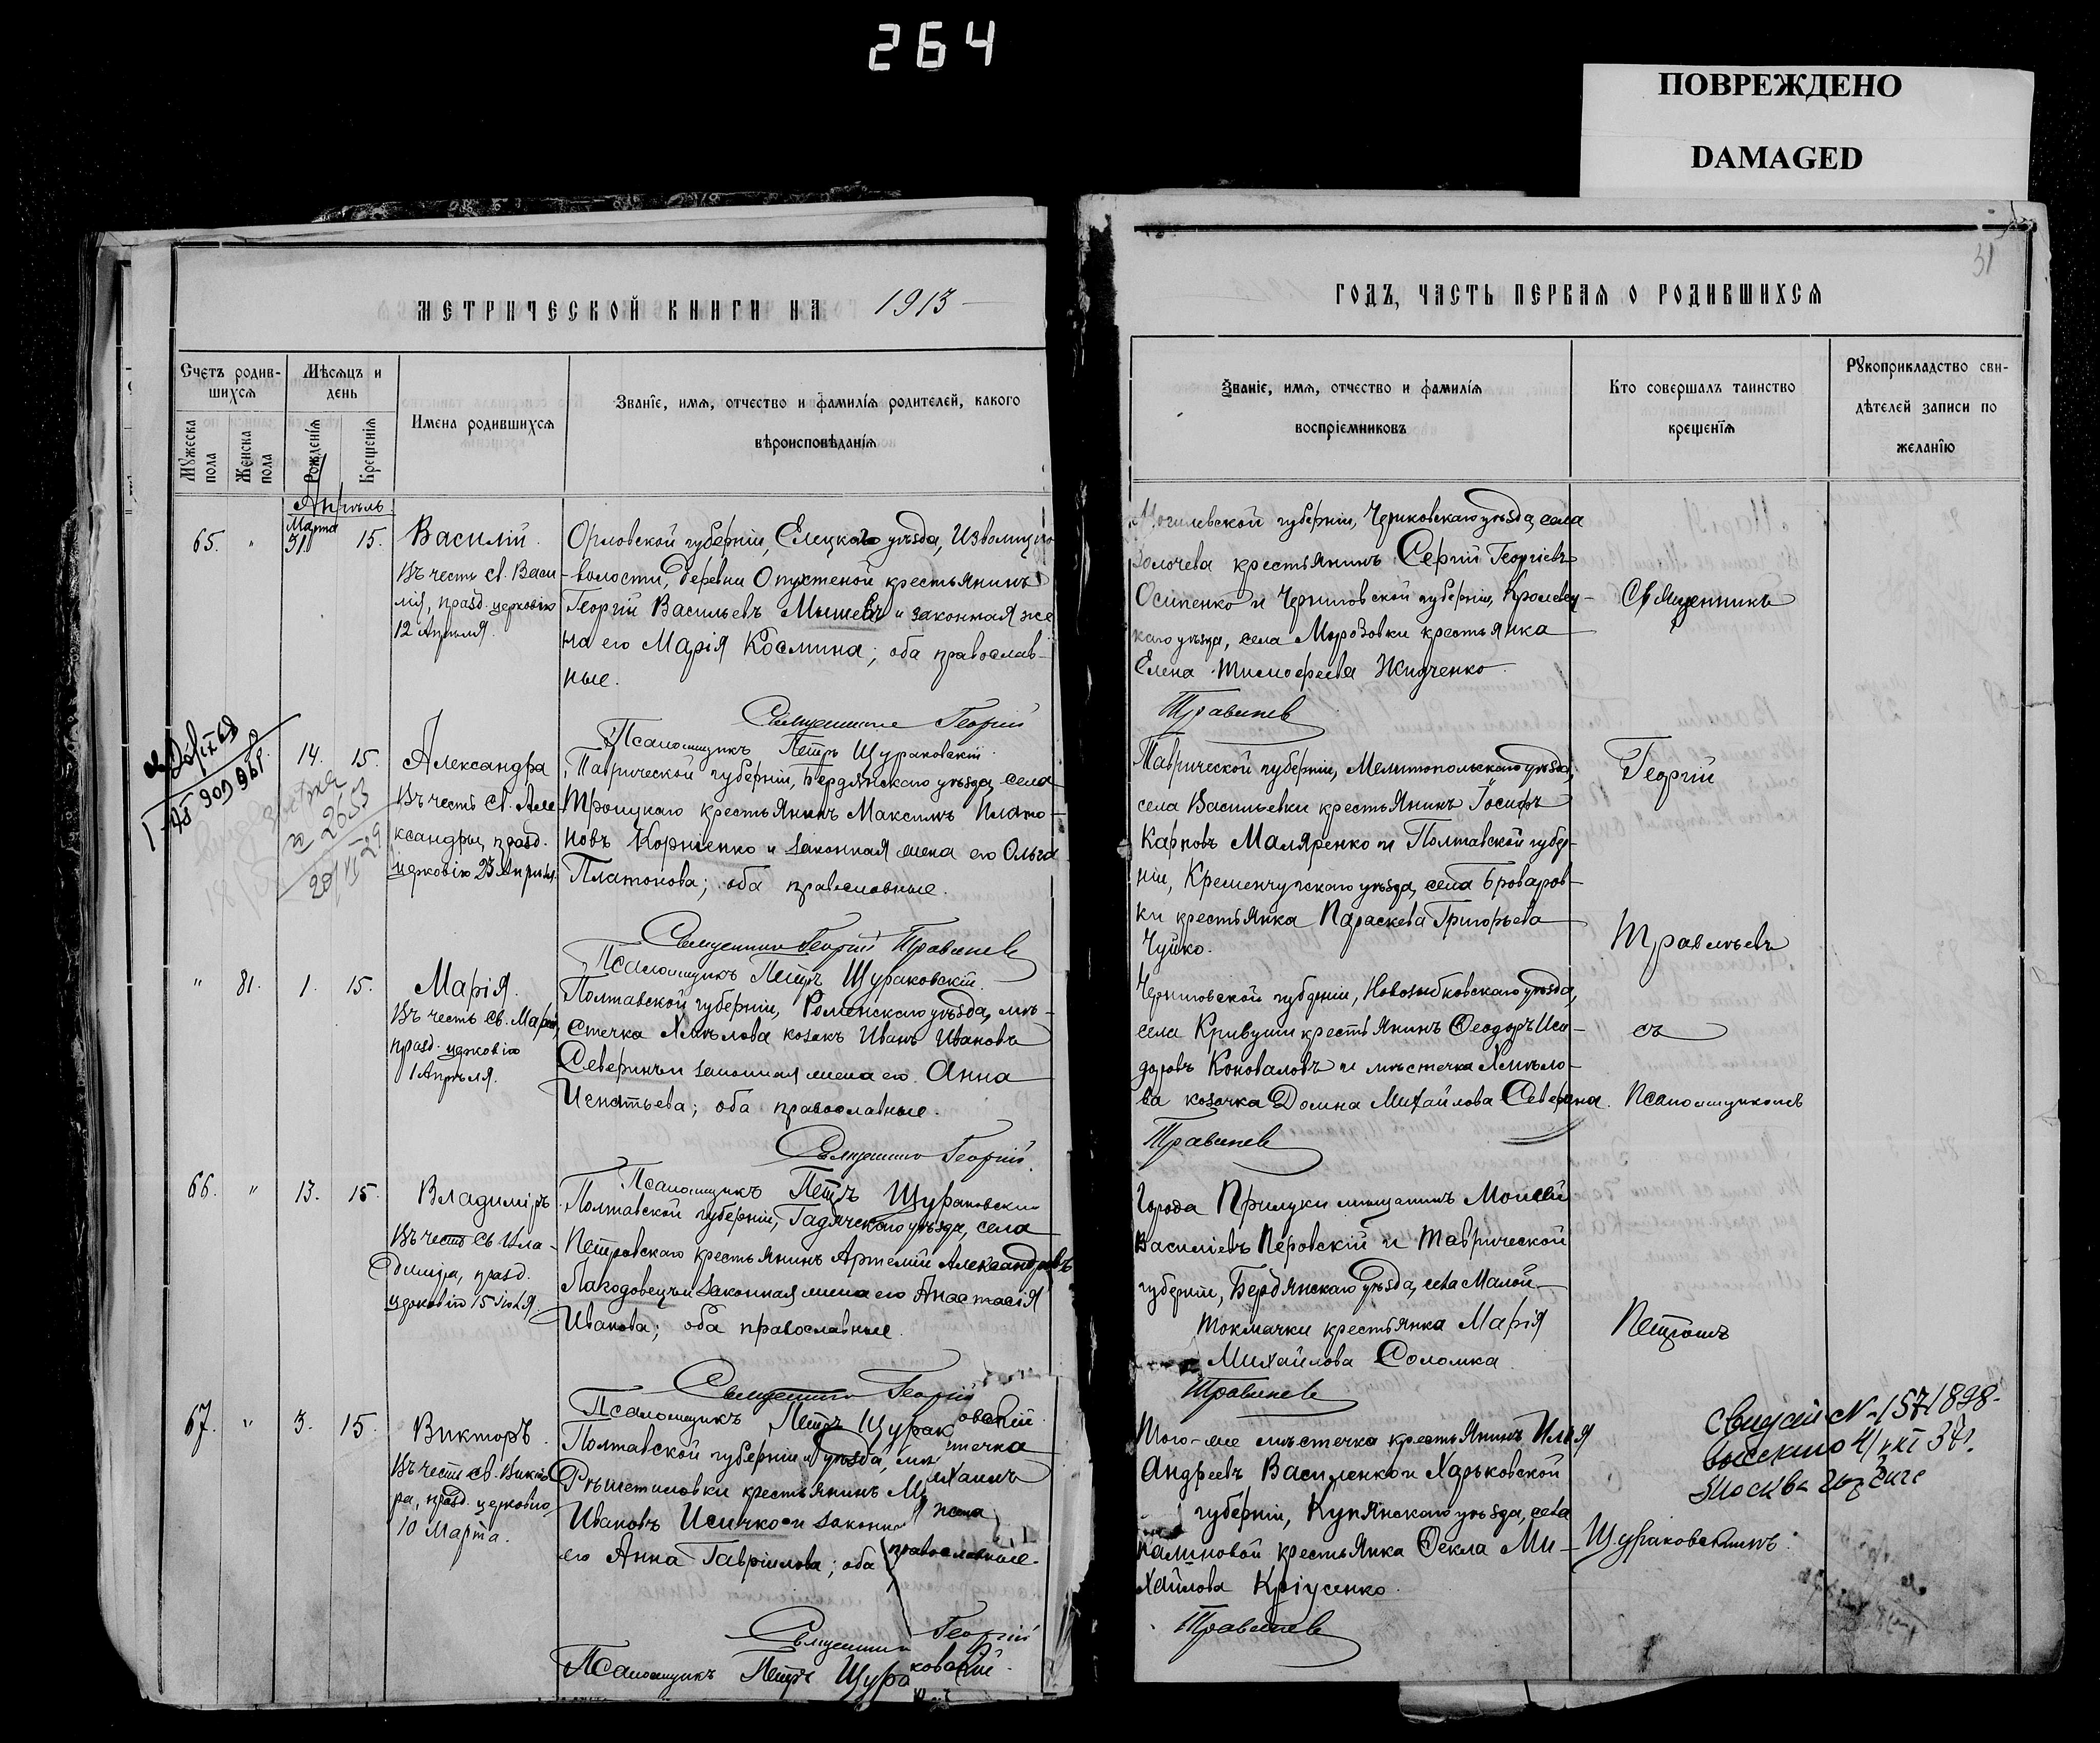 264
ПОВРЕЖДЕНО
DAMAGED
31
МЕТРИЧЕСКОЙ КНИГИ НА 1913
ГОДЪ, ЧАСТЬ ПЕРВАЯ О РОДИВШИХСЯ
Счетъ родив-
шихся
Мѣсяцъ и
день
Мужеска
пола
Женска
пола
Рожденія
Крещенія
Имена родившихся
Званіе, имя, отчество и фамилія родителей, какого
вѣроисповѣданія
Званіе, имя, отчество и фамилія
воспріемниковъ
Кто совершалъ таинство
крещенія
Рукоприкладство сви-
дѣтелей записи по
желанію
Апрѣль
65. " Марта 31 15.
Василій.
Въ честь св. Васи-
лія, празд. церковію
12 Апрѣля.
Орловской губерніи, Елецкаго уѣзда,
волости, деревни Опухтеной крестьянинъ
Георгій Васильевъ Мышевъ и законная же
на его Марія Космина; оба православ-
ные.
Священникъ Георгій
Псаломщикъ Петръ Щураковскій.
Могилевской губерніи, Чериковскаго уѣзда, села
Золочева крестьянинъ Сергій Георгіевъ
Осипенко и Черниговской губерніи, Кролевец-
каго уѣзда, села Морозовки крестьянка
Елена Тимофеева Жидченко.
Травинев
Священникъ
14. 15.
Александра
Въ честь св. Але
ксандры, празд.
церковію 23 Апрѣля.
№ 2653
Таврической губерніи, Бердянскаго уѣзда, села
Троицкаго крестьянинъ Максимъ Плато-
новъ Корніенко и законная жена его Ольга
Платонова; оба православные.
Священникъ Георгій Травинев
Псаломщикъ Петръ Щураковскій.
Таврической губерніи, Мелитопольскаго уѣзда,
села Васильевки крестьянинъ Іосифъ
Карповъ Маляренко и Полтавской губер-
ніи, Кременчугскаго уѣзда, села Броваров-
ки крестьянка Параскева Григорьева
Чуйко.
Георгій
" 81. 1. 15.
Марія.
Въ честь св. Маріи,
празд. церковію
1 Апрѣля.
Полтавской губерніи, Роменскаго уѣзда, мѣ-
стечка Хмѣлова козакъ Иванъ Ивановъ
Северинъ и законная жена его Анна
Игнатьева; оба православные.
Священникъ Георгій
Псаломщикъ Петръ Щураковскій
Черниговской губерніи, Новозыбковскаго уѣзда,
села Кривуши крестьянинъ Ѳеодоръ Иси-
доровъ Коноваловъ и мѣстечка Хмѣло-
ва козачка Домна Михайлова Северина.
Травинев
съ
Псаломщикомъ
66. " 13. 15.
Владиміръ
Въ честь св. Вла-
диміра, празд.
церковію 15 Іюля.
Полтавской губерніи, Гадячскаго уѣзда, села
Петровскаго крестьянинъ Артемій Александровъ
Лагодовецъ и законная жена его Анастасія
Иванова; оба православные.
Священникъ Георгій
Псаломщикъ Петръ Щураковскій.
Города Прилуки мѣщанинъ Моисей
Василіевъ Перовскій и Таврической
губерніи, Бердянскаго уѣзда, села Малой
Токмачки крестьянка Марія
Михайлова Соломка.
Травинев
Петромъ
67. " 3. 15.
Викторъ.
Въ честь св. Викто
ра, празд. церковію
10 Марта.
Полтавской губерніи и уѣзда, мѣстечка
Рѣшетиловки крестьянинъ Михаилъ
Ивановъ Исичко и законная жена
его Анна Гавріилова; оба православные.
Священникъ Георгій
Псаломщикъ Петръ Щураковскій.
Того-же мѣстечка крестьянинъ Илья
Андреевъ Василенко и Харьковской
губерніи, Купянскаго уѣзда, села
Калиновой крестьянка Ѳекла Ми-
хайлова Кріусенко.
Травинев
Щураковскимъ.